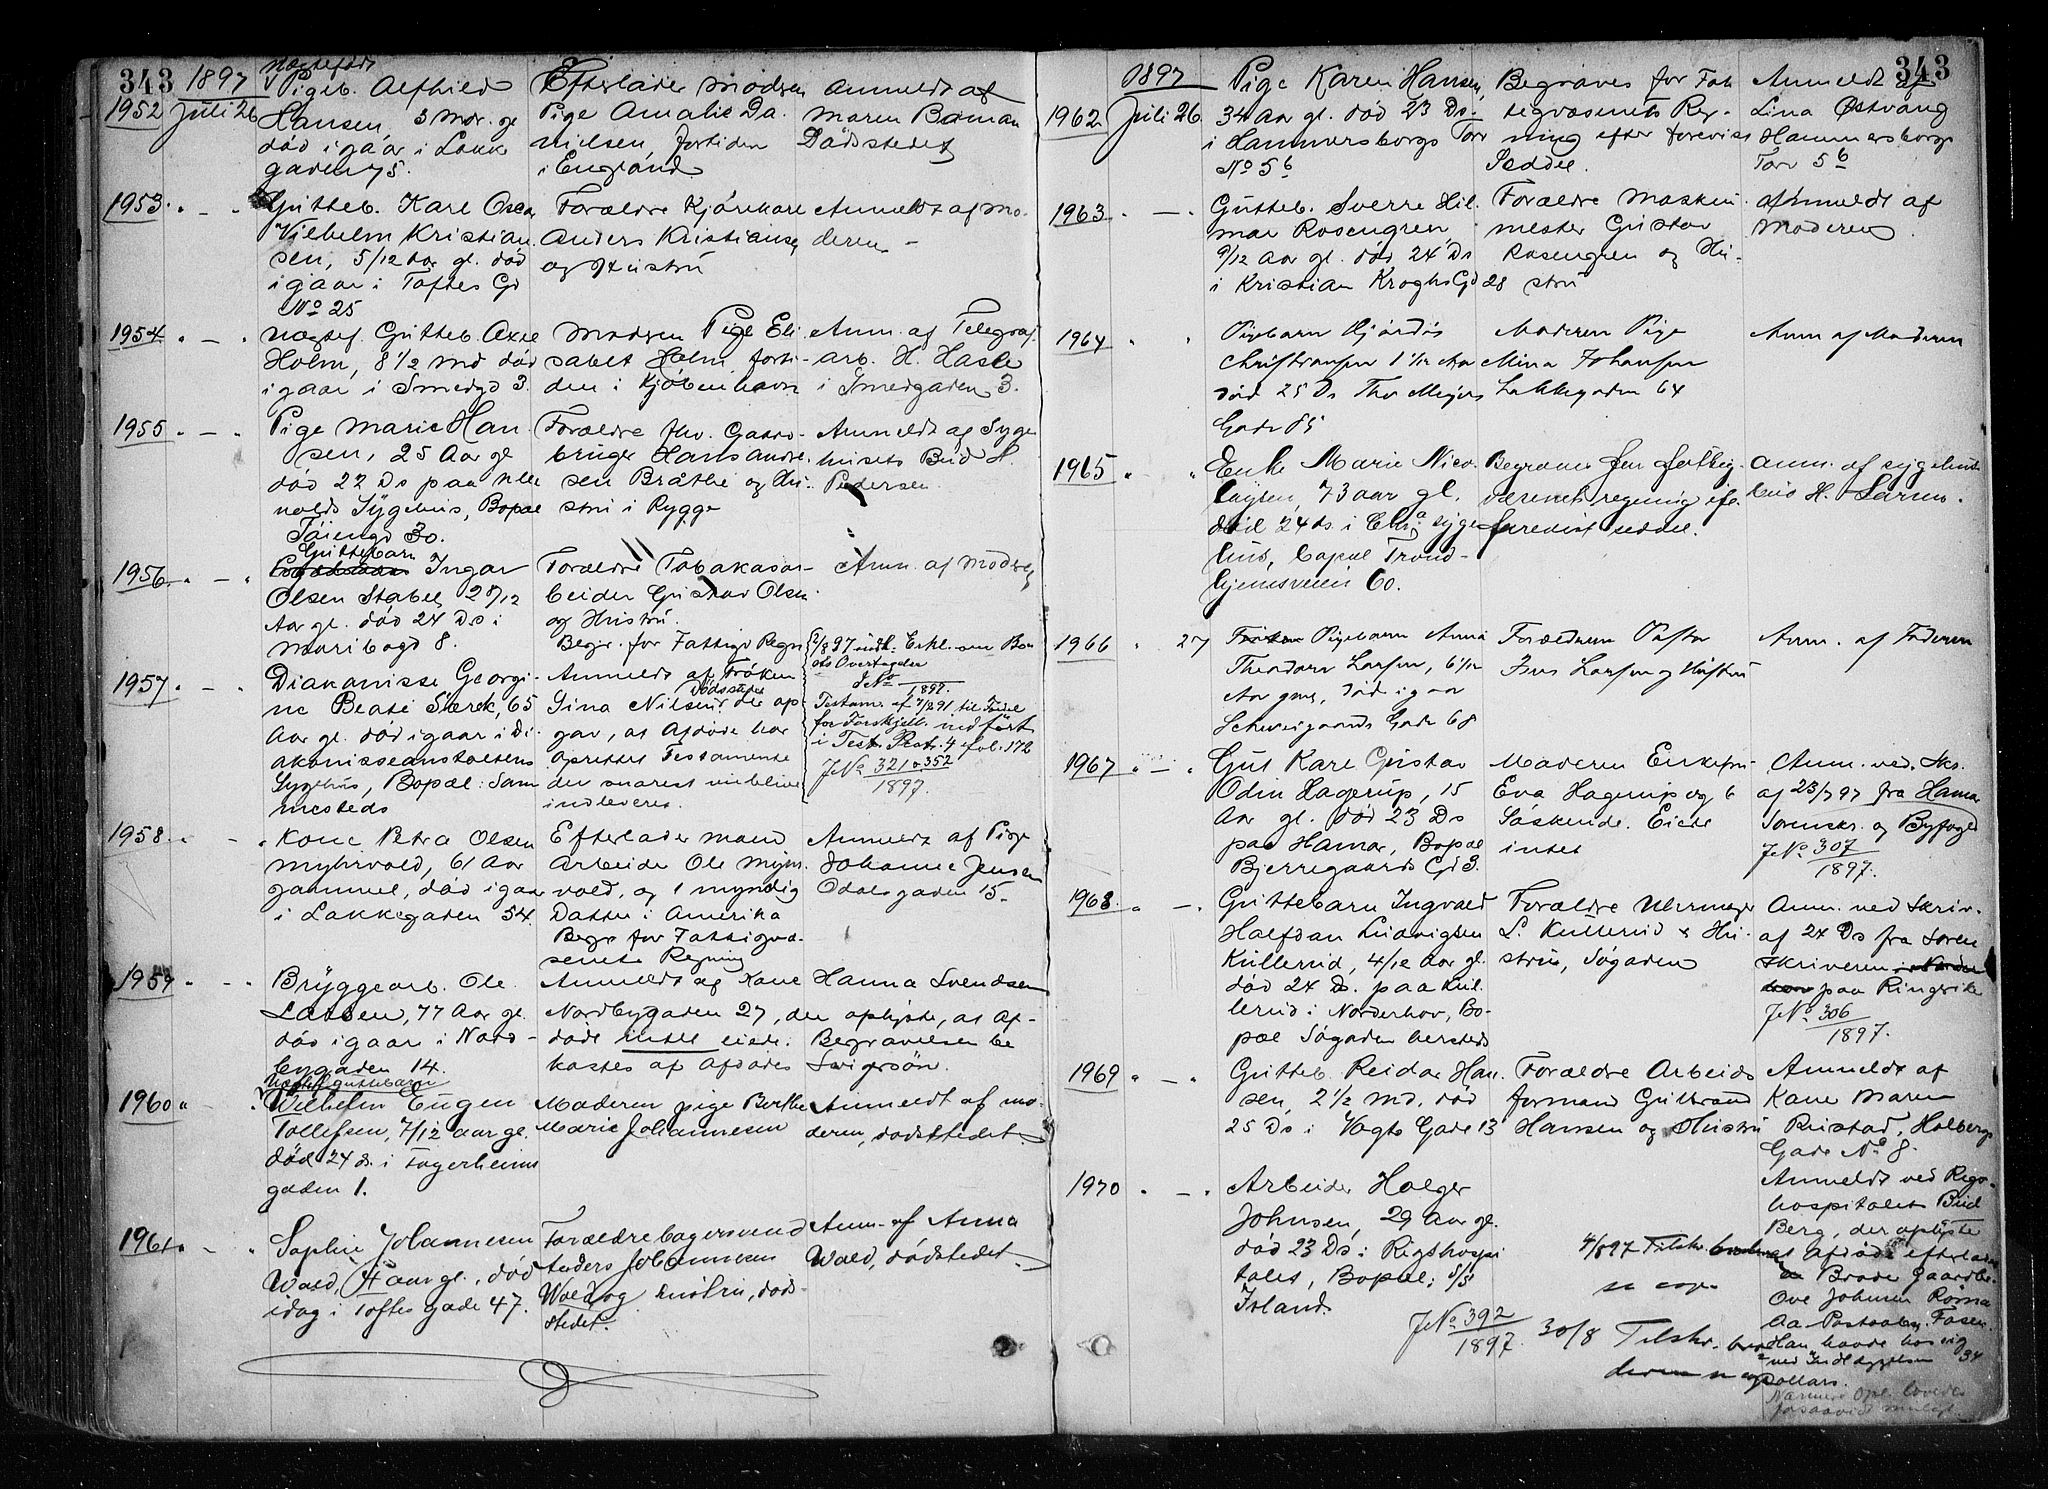 343
1897
1952 Juli 26
Pigeb. Alfhild
Hansen, 3 Mdr. gl
død igaar i Lakke
gaden 75.
Efterlader Modren
Pige Amalie Da
nielsen, fortiden
i England
Anmeldt af
Maren Baman
Dødsstedet
1953. " — "
Gutteb. Karl Oscar
Vilhelm Kristian
sen, 5/12 Aar gl. død
igaar i Toftes Gd
No 25
Forældre Kjørekarl
Anders Kristiansen
og Hustru
Anmeldt af Mo-
deren —
1954 " — "
Uægtef. Gutteb. Axel
Holm, 8 1/2 Md død
igaar i Smedgd 3.
Modren Pige Eli
sabet Holm, forti-
den i Kjøbenhavn
Anm. af Telegraf
arb. H. Hasle
i Smedgaden 3.
1955 " — "
Pige Marie Han
sen, 25 Aar gl
død 22 Ds paa Ulle
volds Sygehus, Bopæl
Tøiengd 30.
Forældre fhv. Gaard-
bruger Hans Andre
sen Bråthe og Hu-
stru i Rygge
Anmeldt af Syge
husets Bud H.
Pedersen
1956. " — "
Guttebarn
Ingar
Olsen Stabel 2 8/12
Aar gl. død 24 Ds i
Maribogd 8.
Forældre Tobaksar-
beider Gustav Olsen
og Hustru.
Begr. for Fattigv Regn
Anm. af Modren
1957. " — "
Diakonisse Georgi-
ne Beate Stærk, 65
Aar gl. død igaar i Di-
akonisseanstaltens
Sygehus, Bopæl: Sam
mesteds
Anmeldt af Frøken
Dødsstedet
Sina Nilsen, der op-
gav, at Afdøde har
oprettet Testamente
der snarest vil blive
indleveret.
2/8 97 indk. Erkl. om Bo
ets Overtagelse
JNo
1897.
Testam. af 7/2 91 til Fordel
for Forskjell. indført
i Test. Prot. 4 fol. 172
JNo 321 & 352
1897.
1958. " — "
Kone Petra Olsen
Myhrvold, 61 Aar
gammel, død igaar
i Lakkegaden 54.
Efterlader Mand
Arbeider Ole Myhr
vold, og 1 myndig
Datter i Amerika
Begr for Fattigvæ-
senets Regning
Anmeldt af Pige
Johanne Jensen
Odalsgaden 15.
1959 " — "
Bryggearb. Ole
Larsen, 77 Aar gl.
død igaar i Nord-
bygaden 14.
Anmeldt af Kone Hanna Svendsen
Nordbygaden 27, der oplyste, at Af-
døde intet eiede. Begravelsen be
kostes af Afdødes Svigersøn.
1960 "
Uægtef. guttebarn
Wilhelm Eugen
Tollefsen, 7/12 aar gl.
død 24 ds. i Fagerheims
gaden 1.
Moderen pige Berthe
Marie Johannesen
Anmeldt af mo-
deren, dødsstedet
1961. " — "
Sophie Johannesen
Wold, 4 aar gl., død
idag i Toftes gade 47.
Forældre bagersvend
Anders Johannesen
Wold og hustru, døds-
stedet.
Anm. af Anna
Wold, dødstedet
343
1897
1962 Juli 26
Pige Karen Hansen,
34 Aar gl. død 23 Ds.
i Hammersborgs Torv
No 5b
Begraves for Fat
tigvæsenets Reg-
ning efter forevist
Seddel.
Anmeldt af
Lina Østvang
Hammersborgs
Torv 5b
1963 " — "
Gutteb. Sverre Hil
mar Rosengren,
9/12 Aar gl. død 24 Ds
i Kristian Kroghs Gd 28
Forældre Maskin
mester Gustav
Rosengren og Hu-
stru
Anmeldt af
Moderen
1964 " "
Pigebarn Hjørdis
Christiansen 1 1/12 Aar
død 25 Ds Thv Meyers
Gade 85
Moderen Pige
Mina Johansen
Lakkegaden 64
Anm af Moderen
1965 " "
Enke Marie Nico-
laysen, 73 aar gl.
død 24 ds. i syge
hus, bopæl Trond-
hjemsveien 60.
Begraves for fattig-
væsenets regning efter
forevist seddel.
Anm. af sygehus
bud H. Larsen.
1966 " 27
Pigebarn Anna
Theodora Larsen, 6 1/12
Aar gml, død igaar
Schweigaards Gade 68
Forældrene Pastor
Larsen og Hustru
Anm. af Faderen
1967 " — "
Gut Karl Gustav
Odin Hagerup, 15
Aar gl. død 23 Ds
paa Hamar, Bopæl
Bjerregaards Gd 3.
Moderen Enkefru
Eva Hagerup og 6
Søskende. Eiede
intet
Anm. ved. Skr.
af 23/7 97 fra Hamar
Sorenskr. og Byfoged
JNo 307
1897.
1968. " — "
Guttebarn Ingvald
Halfdan Ludvigsen
Kullerud, 4/12 Aar gl.
død 24 Ds. paa Kul
lerud i Norderhov, Bo-
pæl Søgaden hersteds
Forældre Uhrmager
L. Kullerud & Hu-
stru, Søgaden
Anm. ved Skriv.
af 24 Ds fra Soren
skriveren i Norder
hov paa Ringerike
JNo 306
1897.
1969 " — "
Gutteb. Reidar Han
sen, 2 1/2 Md. død
25 Ds i Vogts Gade 13
Forældre Arbeids
formand Gulbrand
Hansen og Hustru
Anmeldt af
Kone Maren
Rustad, Holbergs
Gade No 8.
1970 " — "
Arbeider Holger
Johnsen, 29 Aar gl.
død 23 Ds. i Rigshospi
talet, Bopæl: S/S
Island.
JNo 392
1897.
4/8 97 Tilskr.
30/8 Tilskr.
Anmeldt ved Rigs-
hospitalets Bud
Berg, der oplyste
at Afdøde efterlader
Broder Gaardbr.
Ove Johnsen
Aa Postaabn. Fosen.
Han havde hos sig
ved Indlæggelsen 34
Dollars.
Nærmere Opl. lovedes
saavidt muligt.